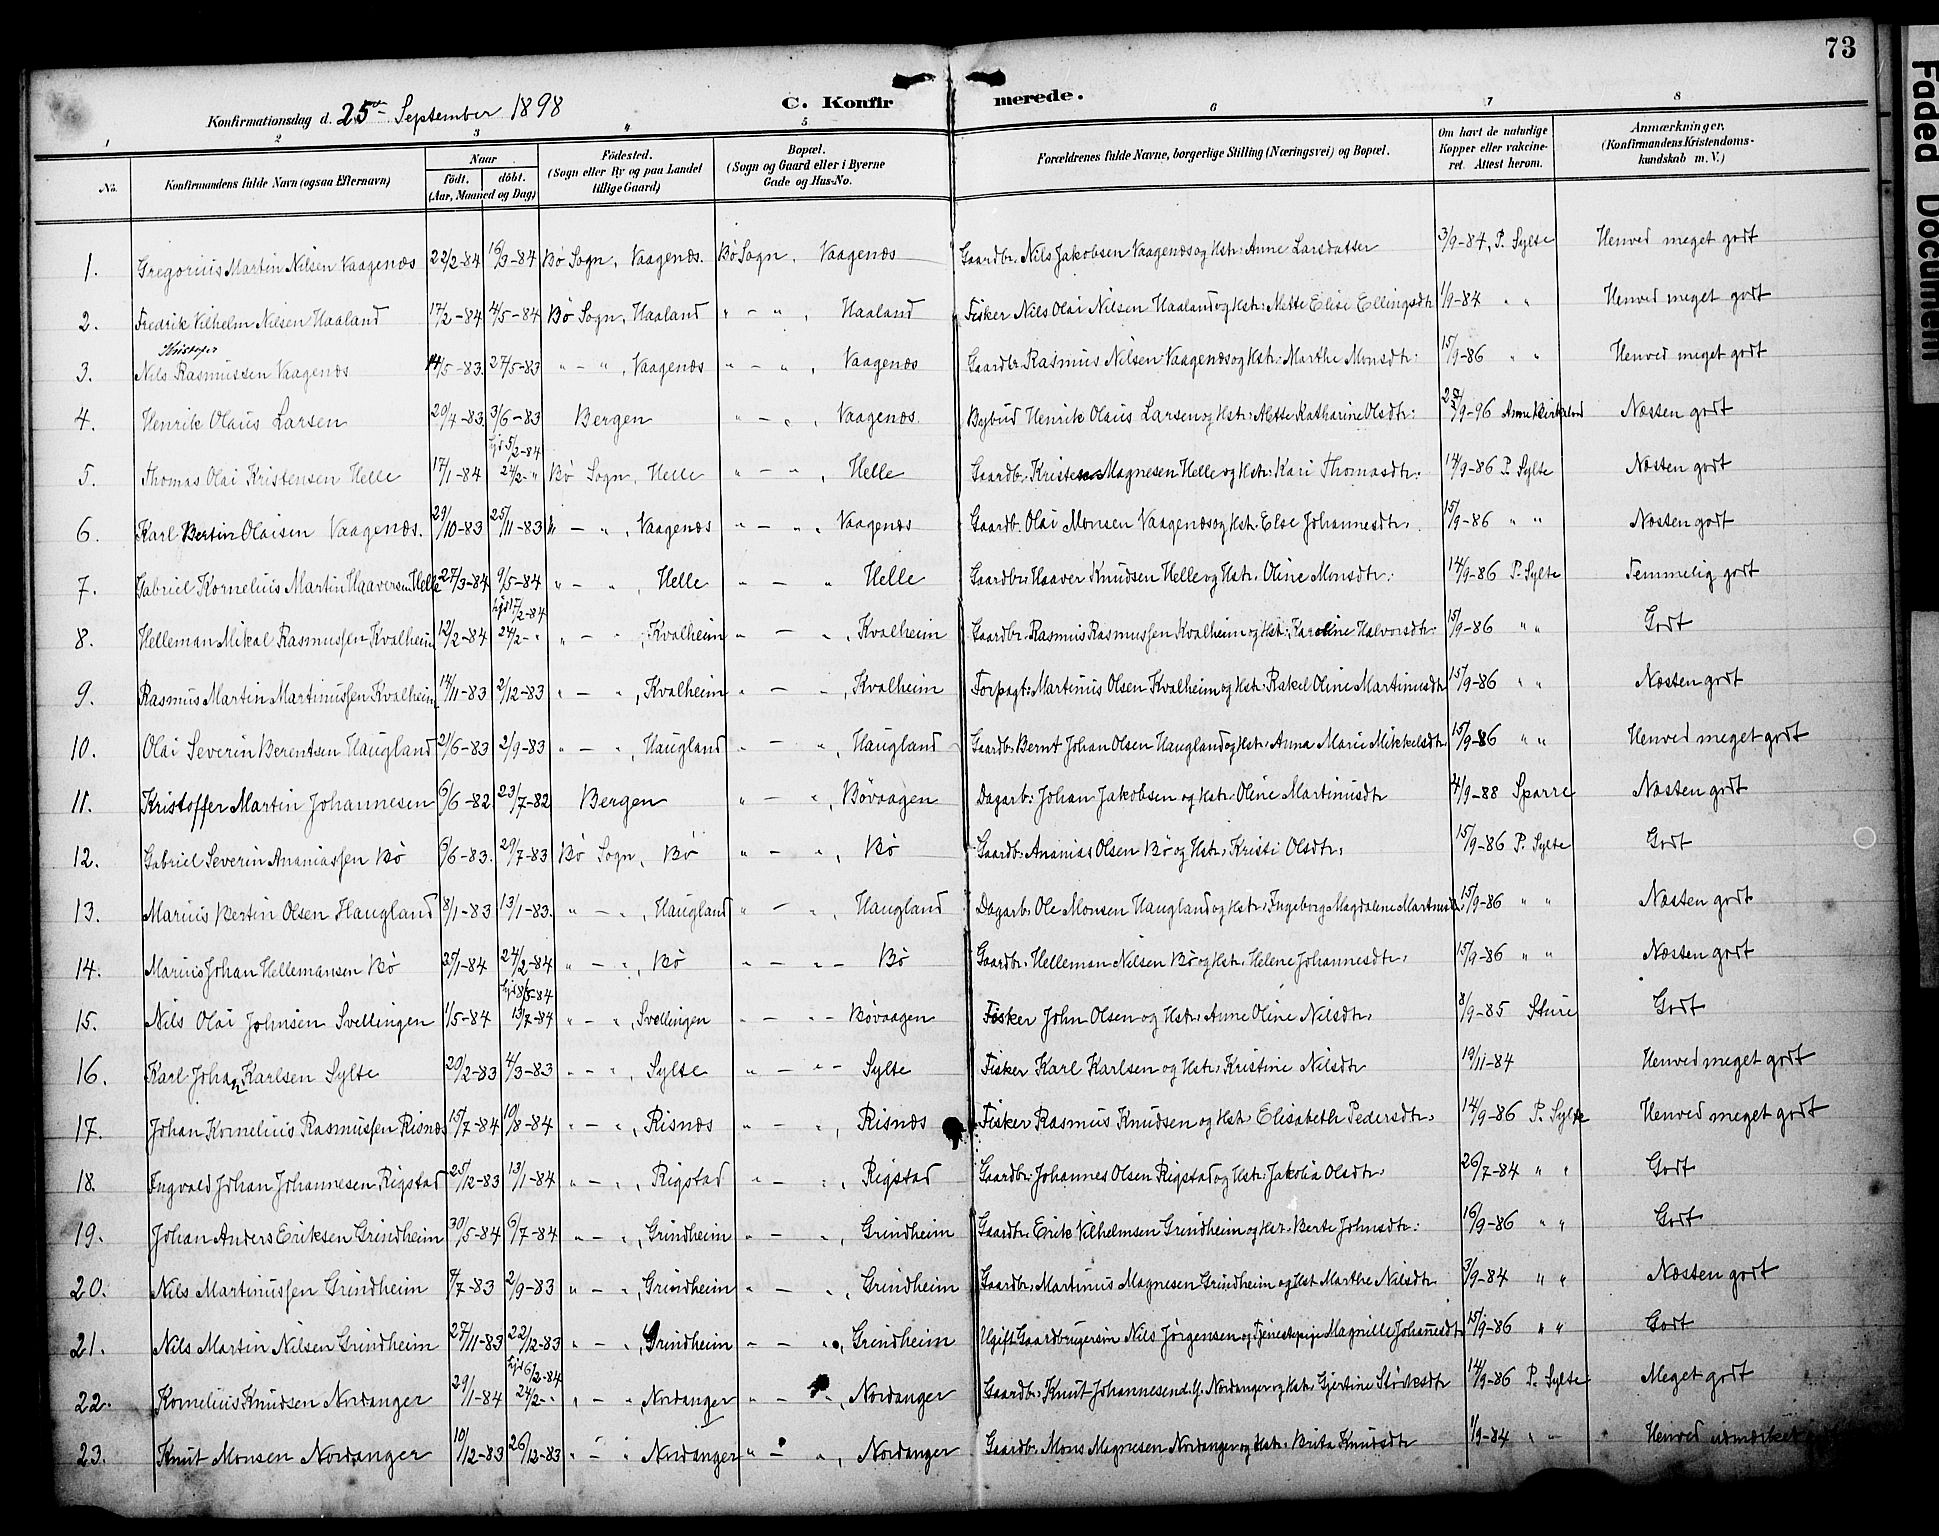 73
Faded Document
Konfirmationsdag d. 25de September 1898
C. Konfirmerede.
1 2 3 " 5 6 7 8
No. Konfirmandens fulde Navn (ogsaa Efternavn) Naar født. døbt. (Aar, Maaned og Dag) Fødested. (Sogn eller By og paa Landet tillige Gaard) Bopæl. (Sogn og Gaard eller i Byerne Gade og Hus-No. Forældrenes fulde Navne, borgerlige Stilling (Næringsvei) og Bopæl. Om havt de naturlige Kopper eller vaccineret. Attest herom. Anmærkninger. (Konfirmandens Kristendomskundskab m. V.)
1. Gregorius Martin Nilsen Vaagenæs 22/2-84 16/3-84 Bø Sogn, Vaagenæs. Bø Sogn, Vaagenæs Gaardbr. Nils Jakobsen Vaagenæs og Hstr. Anne Larsdatter 3/9-84, P. Sylte Henved meget godt
2. Fredrik Vilhelm Nilsen Haaland 17/2-84 4/5-84 Bø Sogn, Haaland " - ", Haaland Fisker Nils Olai Nilsen Haaland og Hstr. Mette Elise Ellingsdtr 1/9-84 " " Henved meget godt
Kristofer
3. Nils Rasmussen Vaagenæs 14/5-83. 27/5-83 " - ", Vaagenæs " - ", Vaagenæs Gaardbr. Rasmus Nilsen Vaagenæs og Hstr. Marthe Monsdtr. 15/9-86 " " Henved meget godt
4. Henrik Olaus Larsen 20/4-83 3/6-83 Bergen " - ", Vaagenæs. Bybud Henrik Olaus Larsen og Hstr. Mette Katharine Olsdtr. 25/9-96 Anne Næsten godt
5. Thomas Olai Kristensen Helle 17/1-84 hjd 5/2-84 24/2-" Bø Sogn, Helle " - ", Helle Gaardbr. Kristen Magnesen Helle og Hstr. Kari Thomasdtr. 14/9-86 P. Sylte Næsten godt
6. Karl Bertin Olaisen Vaagenæs. 29/10-83 25/11-83 " - ", Vaagenæs " - ", Vaagenæs Gaardb. Olai Monsen Vaagenæs og Hstr. Else Johannesdtr. 15/9-86 " " Næsten godt
7. Gabriel Kornelius Martin Haaversen Helle 27/3-84 9/5-84 " - ", Helle " - " Helle Gaardbr. Haaver Knudsen Helle og Hstr. Oline Monsdtr. 14/9-86 P. Sylte Temmelig godt
8. Helleman Mikal Rasmussen Kvalheim 12/2-84 hjd 17/2-84 24/2-" " - ", Kvalheim " - ", Kvalheim Gaardbr. Rasmus Rasmussen Kvalheim og Hstr. Karoline Halvorsdtr. 15/9-86 " " Godt
9. Rasmus Martin Martinussen Kvalheim 14/11-83 2/12-83 " - ", Kvalheim " - ", Kvalheim Forpagt. Martinus Olsen Kvalheim og Hstr. Rakel Oline Martinusdtr 15/9-86 " " Næsten godt
10. Olai Severin Berentsen Haugland 21/6-83 2/9-83 " - ", Haugland " - ", Haugland Gaardb. Bernt Johan Olsen Haugland og Hstr. Anna Marie Mikkelsdtr. 15/9-86 " " Henved meget godt
11. Kristoffer Martin Johannesen 6/6-82 23/7-82 Bergen " - ", Bøvaagen Dagarb. Johan Jakobsen og Hstr. Oline Martinusdtr 4/9-88 Sparre Næsten godt
12. Gabriel Severin Ananiassen Bø 6/6-83. 29/7-83 Bø Sogn, Bø " - ", Bø Gaardb. Ananias Olsen Bø og Hstr. Kristi Olsdtr. 15/9-86 P. Sylte Godt
13. Marius Bertin Olsen Haugland 8/1-83 13/1-83. " - ", Haugland " - ", Haugland Dagarb. Ole Monsen Haugland og Hstr. Ingeborg Magdalene 15/9-86 " " Næsten godt
14. Marius Johan Hellemansen Bø 31/1-84 24/2-84 " - ", Bø " - " - Bø Gaardbr. Helleman Nilsen Bø og Hstr. Helene Johannesdtr. 15/9-86 " " Næsten godt
15. Nils Olai Johnsen Svellingen 1/5-84 hjd 8/5-84 13/7-84 " - ", Svellingen " - " - Bøvaagen Fisker John Olsen og Hstr. Anne Oline Nilsdtr. 8/9-85 Sture Godt
16. Karl Johan Karlsen Sylte 20/2-83 4/3-83 " - ", Sylte " - " - Sylte Fisker Karl Karlsen og Hstr. Kristine Nilsdtr 19/11-84 Henved meget godt
17. Johan Kornelius Rasmussen Risnæs 15/7-84 10/8-84 " - ", Risnæs " - ", Risnæs Fisker Rasmus Knudsen og Hstr. Elisabeth Pedersdtr. 14/9-86 P. Sylte Henved meget godt
18. Ingvald Johan Johannesen Rigstad 25/12-83 13/1-84 " - ", Rigstad " - ", Rigstad Gaardbr. Johannes Olsen Rigstad og Hstr. Jakobia Olsdtr. 26/7-84 " " Godt
19. Johan Anders Eriksen Grindheim 30/5-84 6/7-84 " - ", Grindheim " - ", Grindheim Gaardbr. Erik Vilhelmsen Grindheim og Hstr. Berte Johnsdtr. 16/9-86 " " Godt
20. Nils Martinussen Grindheim 4/7-83 2/9-83 " - ", Grindheim " - ", Grindheim Gaardbr. Martinus Magnesen Grindheim og Hst Marthe Nilsdtr 3/9-84 " " Næsten godt
21. Nils Martin Nilsen Grindheim 27/11-83 22/12-83 " - ", Grindheim " - ", Grindheim Ugift Gaardbrugersøn Nils Jørgensen og Tjenestepige Magnille Johannesdtr 15/9-86 " " Godt
22. Kornelius Knudsen Nordanger 29/1-84 hjd 6/2-84 24/2-" " - ", Nordanger " - ", Nordanger Gaardbr. Knut Johannesen d.y. Nordanger og Hstr. Gjertine 14/9-86 P. Sylte Meget godt
23. Knut Monsen Nordanger 10/12-83 26/12-83 " - " Nordanger " - ", Nordanger Gaardbr. Mons Magnesen Nordanger og Hstr. Brita Knudsdtr 1/9-84 " " Henved udmærket